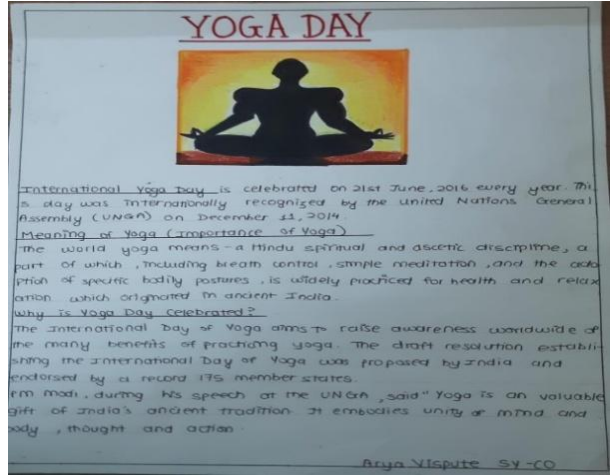 YOGA DAY
International Yoga Day is celebrated on 21st June, 2016 every year. Thi
s day was Internationally recognized by the United Nations General
Assembly (UNGA) on December 11, 2014.
Meaning of Yoga (Importance of Yoga)
The world yoga means - a Hindu spiritual and ascetic discipline, a
part of which, including breath control, simple meditation, and the ado
ption of specific bodily postures, is widely practiced for health and relax
ation which originated in ancient India.
Why is Yoga Day Celebrated?
The International Day of Yoga aims to raise awareness worldwide of
the many benefits of practicing yoga. The draft resolution establi-
shing the International Day of Yoga was proposed by India and
endorsed by a record 175 member states.
PM Modi, during his speech at the UNGA, said "Yoga is an valuable
gift of India's ancient tradition It embodies unity of mind and
body, thought and action.
Arya Vispute SY-CO